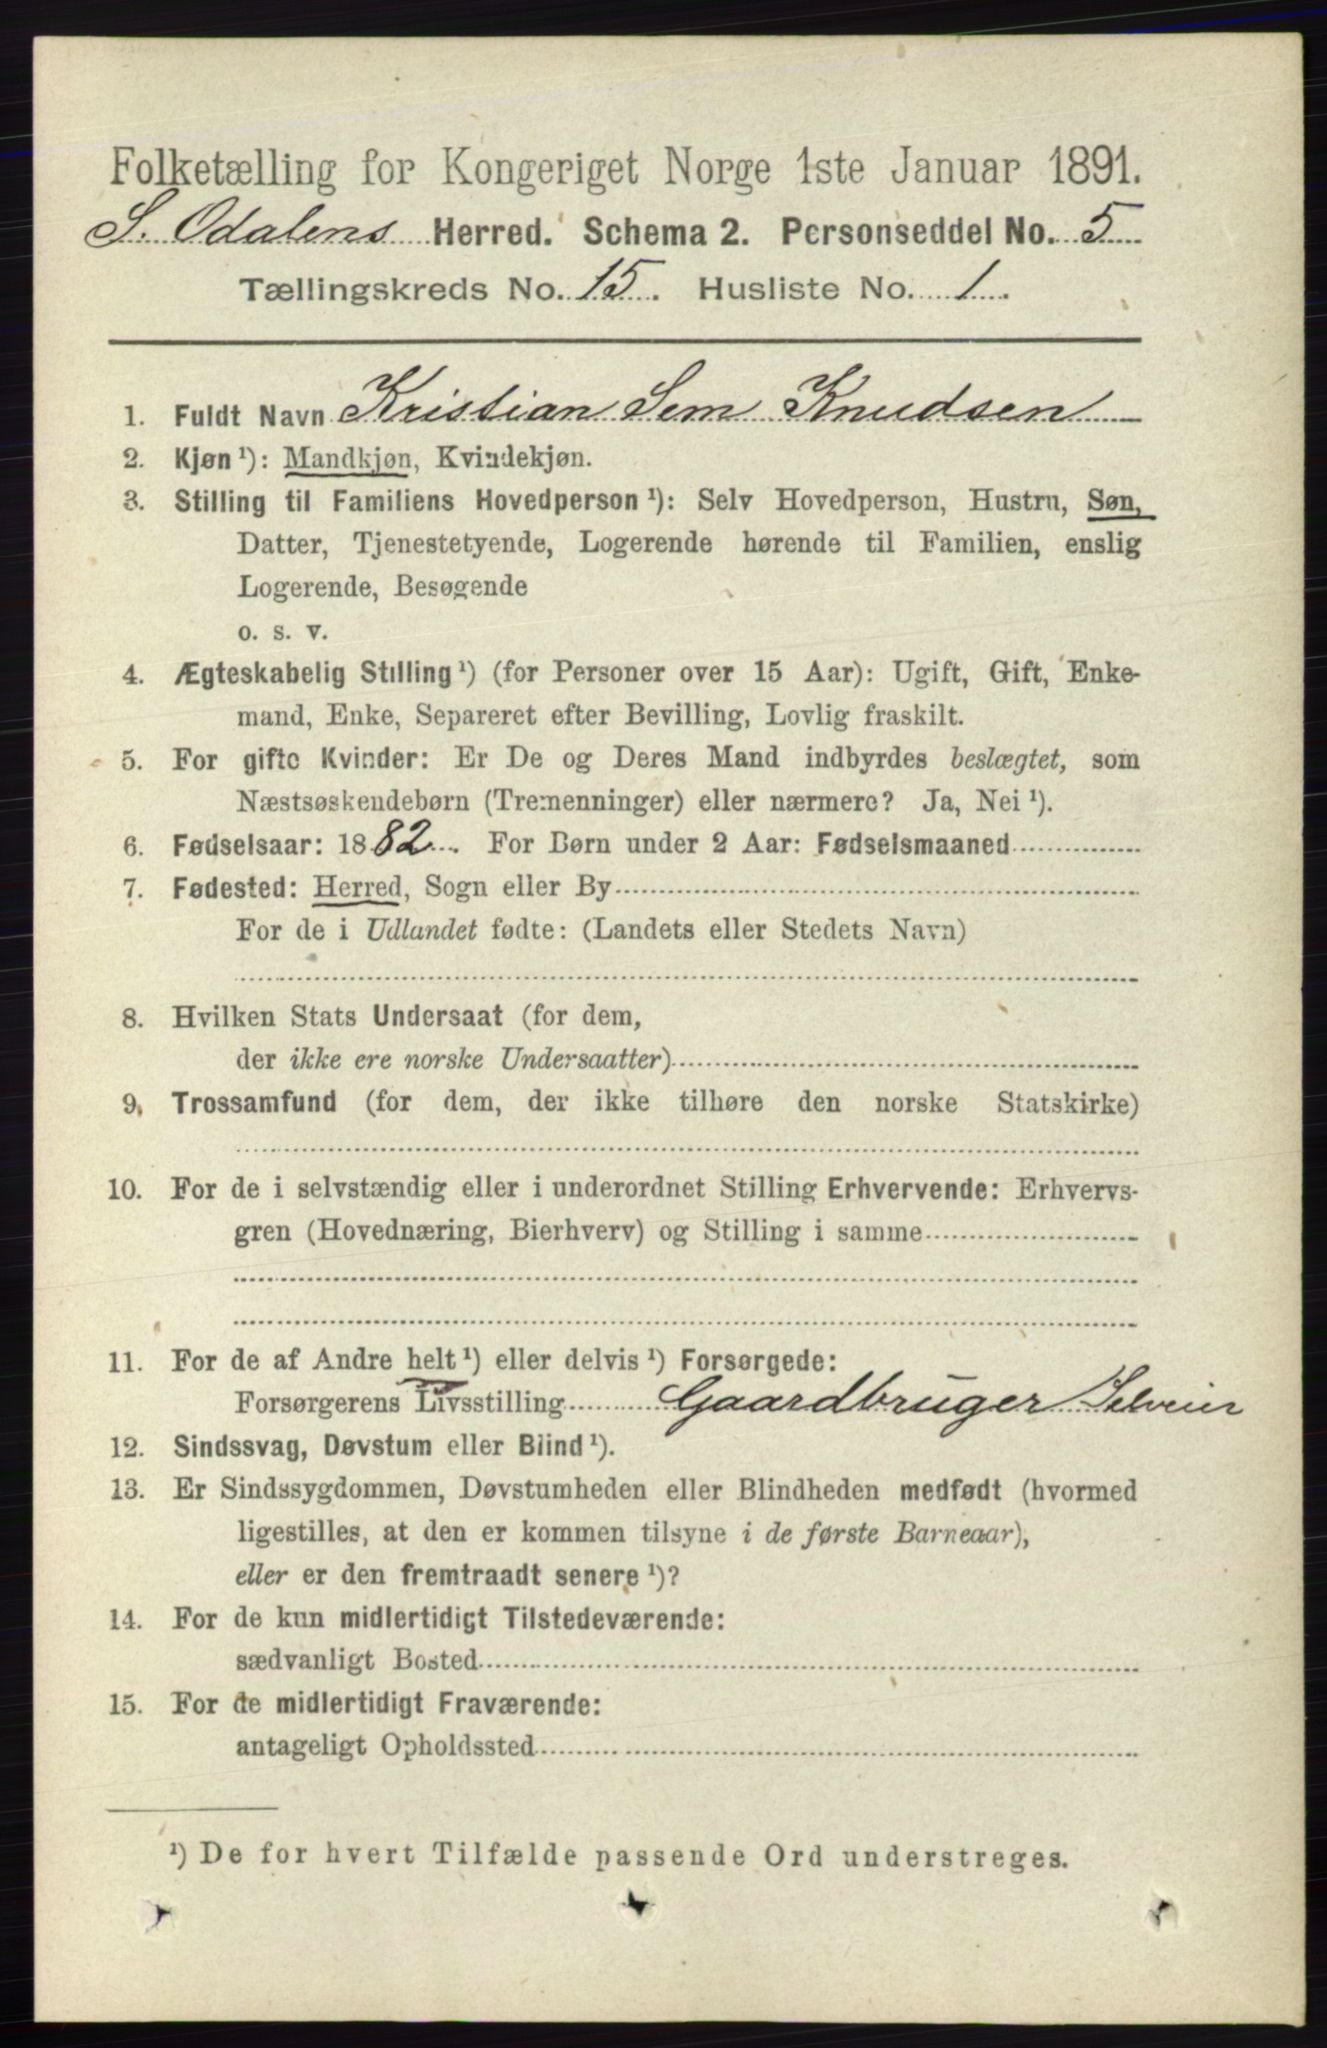 Folketælling for Kongeriget Norge 1ste Januar 1891.
S. Odalens Herred. Schema 2. Personseddel No. 5
Tællingskreds No. 15. Husliste No. 1.
1. Fuldt Navn Kristian Sem Knudsen
2. Kjøn ¹): Mandkjøn, Kvindekjøn.
3. Stilling til Familiens Hovedperson ¹): Selv Hovedperson, Hustru, Søn,
Datter, Tjenestetyende, Logerende hørende til Familien, enslig
Logerende, Besøgende
o. s. v.
4. Ægteskabelig Stilling ¹) (for Personer over 15 Aar): Ugift, Gift, Enke-
mand, Enke, Separeret efter Bevilling, Lovlig fraskilt.
5. For gifte Kvinder: Er De og Deres Mand indbyrdes beslægtet, som
Næstsøskendebørn (Tremenninger) eller nærmere? Ja, Nei ¹).
6. Fødselsaar: 1882. For Børn under 2 Aar: Fødselsmaaned
7. Fødested: Herred, Sogn eller By
For de i Udlandet fødte: (Landets eller Stedets Navn)
8. Hvilken Stats Undersaat (for dem,
der ikke ere norske Undersaatter)
9. Trossamfund (for dem, der ikke tilhøre den norske Statskirke)
10. For de i selvstændig eller i underordnet Stilling Erhvervende: Erhvervs-
gren (Hovednæring, Bierhverv) og Stilling i samme
11. For de af Andre helt ¹) eller delvis ¹) Forsørgede:
Forsørgerens Livsstilling Gaardbruger Selveier
12. Sindssvag, Døvstum eller Blind ¹).
13. Er Sindssygdommen, Døvstumheden eller Blindheden medfødt (hvormed
ligestilles, at den er kommen tilsyne i de første Barneaar),
eller er den fremtraadt senere ¹)?
14. For de kun midlertidigt Tilstedeværende:
sædvanligt Bosted
15. For de midlertidigt Fraværende:
antageligt Opholdssted
¹) De for hvert Tilfælde passende Ord understreges.